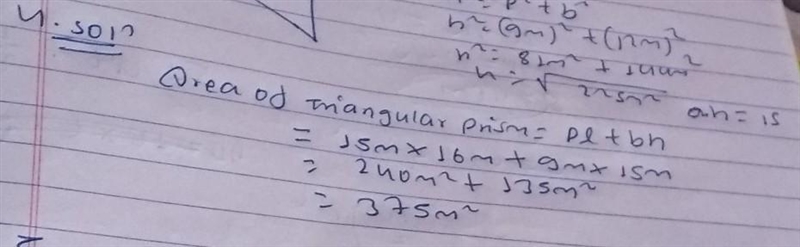 h² = (9m)² + (12m)²
h² = 81m² + 144m²
h = √225m² ah = 15
4. Soln
Area of triangular prism = Pl + bh
= 15m × 16m + 9m × 15m
= 240m² + 135m²
= 375m²